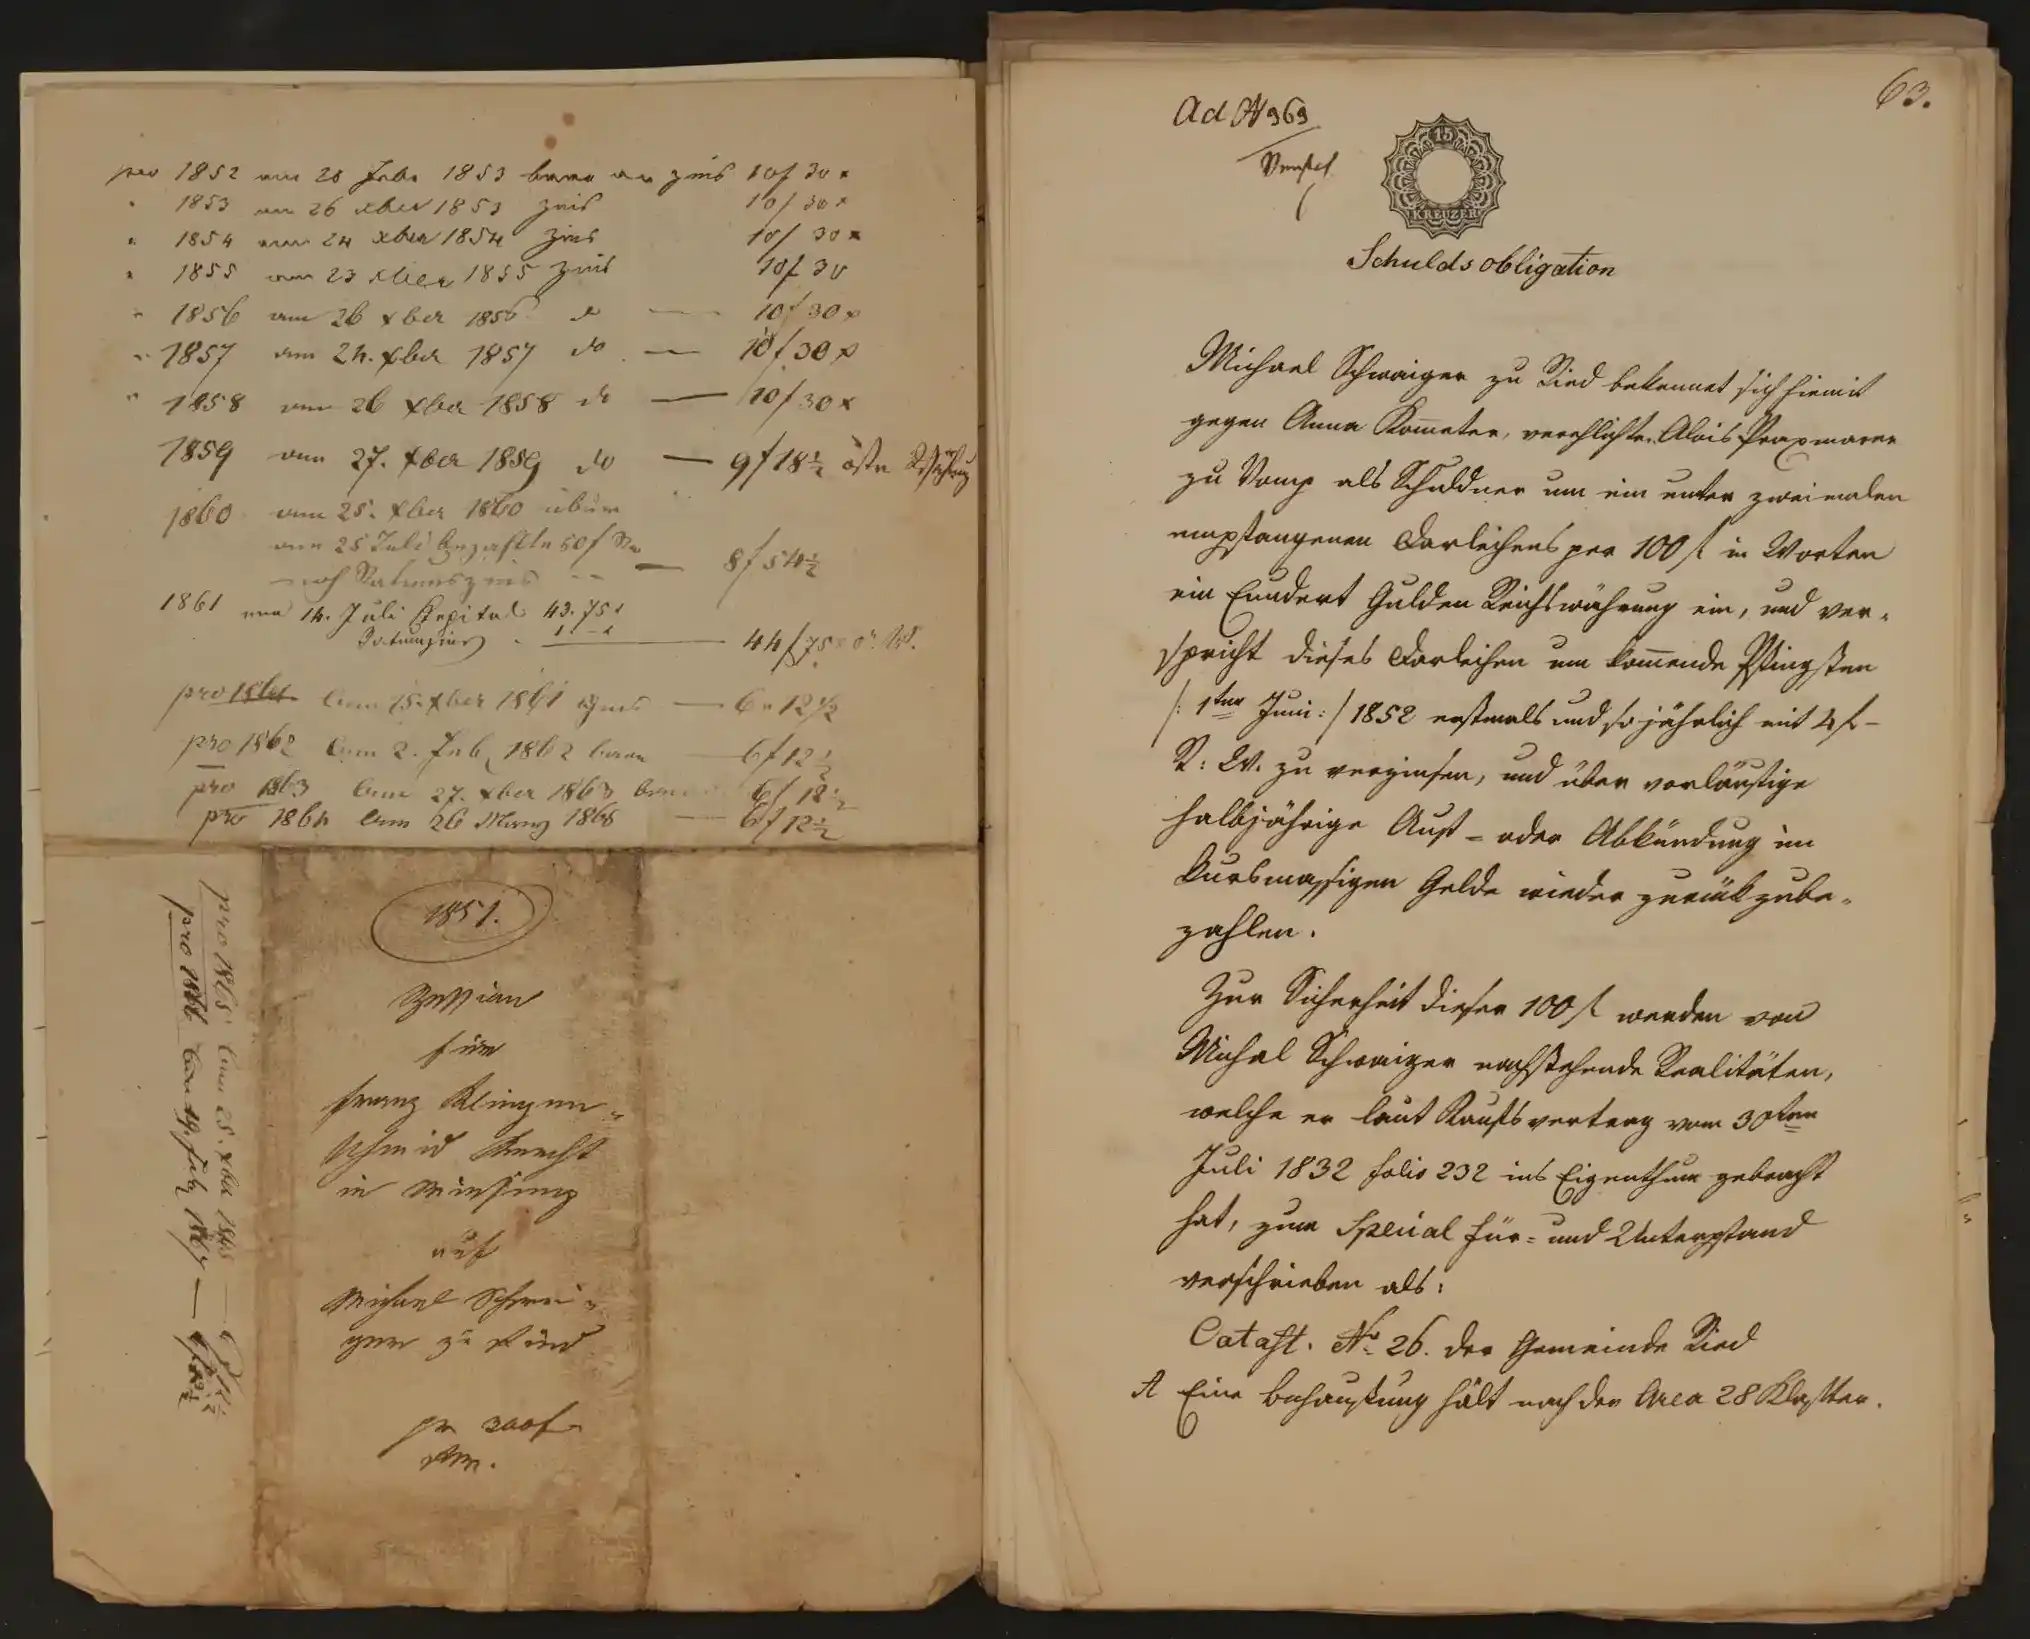 pro 1852 am 28 Febr 1853 zins 10f 30x
" 1853 am 26 xber 1853 zins 10f 30x
" 1854 am 24 xber 1854 zins 10f 30x
" 1855 am 23 xber 1855 zins 10f 30
" 1856 am 26 xber 1856 do — 10f 30x
" 1857 am 24. xber 1857 do — 10f 30x
" 1858 am 26 xber 1858 do — 10f 30x
1859 am 27. xber 1859 do — 9f 18½ östr
1860 am 25. xber 1860
am 25 Juli bezahlte 50f
noch — 8f 54½
1861 am 14. Juli Kapital 43. 75
— 44f 75
pro 1861 am 15. xber 1861 Zins — 6 " 12½
pro 1862 am 2. 1862 — 6f 12½
pro 1863 am 27. xber 1863 6f 12½
pro 1864 am 26 März 1865 — 6f 12½
pro 1865 am 25. xber 1865 —
pro 1866 am 19. 1867 —
1851.
Zession
für
Franz Klingen=
schmid Knecht
in
auf
Michael Schwai=
ger zu Ried
pr 200f
RW.
63.
Ad N 969
15
KREUZER
Schuldsobligation
Michael Schwaiger zu Ried bekennet sich hiemit
gegen Anna Kom̄eter, verehlichte Alois Praxmarer
zu Vomp als Schuldner um ein unter zweimalen
empfangenen Darleihens per 100 f in Worten
ein Hundert Gulden Reichswährung ein, und ver=
spricht dieses Darleihen um kom̄ende Pfingsten
/: 1ten Juni :/ 1852 erstmals und so jährlich mit 4 f –
R: W. zu verzinsen, und über vorläufige
halbjährige Auf – oder Abkündung im
kursmassigen Gelde wieder zurückzube=
zahlen.
Zur Sicherheit dieser 100 f werden von
Michael Schwaiger nachstehende Realitäten,
welche er laut Kaufsvertrag vom 30ten
Juli 1832 folio 232 ins Eigenthum gebracht
hat, zum Special Für= und Unterpfand
verschrieben als:
Catast. No 26. der Gemeinde Ried
A Eine Behausung hält nach der Area 28 Klafter.